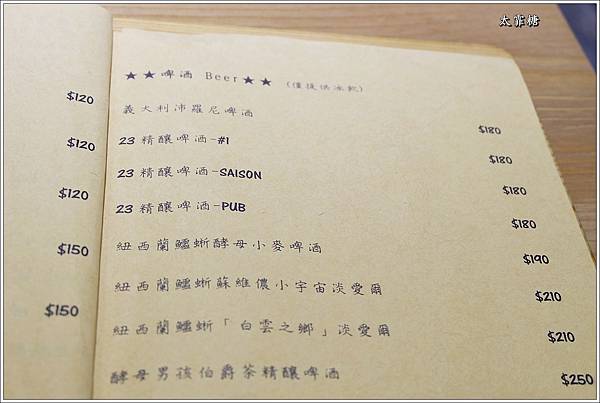 太罪糖
★★啤酒 Beer★★ (僅提供冰飲)
義大利沛羅尼啤酒 $180
23 精釀啤酒-#1 $180
23 精釀啤酒-SAISON $180
23 精釀啤酒-PUB $180
紐西蘭鱷蜥酵母小麥啤酒 $190
紐西蘭鱷蜥蘇維儂小宇宙淡愛爾 $210
紐西蘭鱷蜥「白雲之鄉」淡愛爾 $210
酵母男孩伯爵茶精釀啤酒 $250
$120
$120
$120
$150
$150